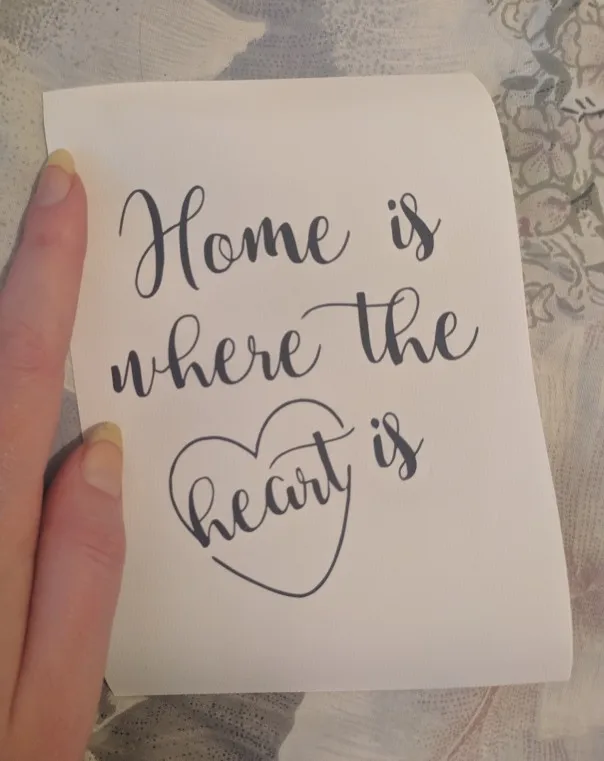 Home is
where the
heart is